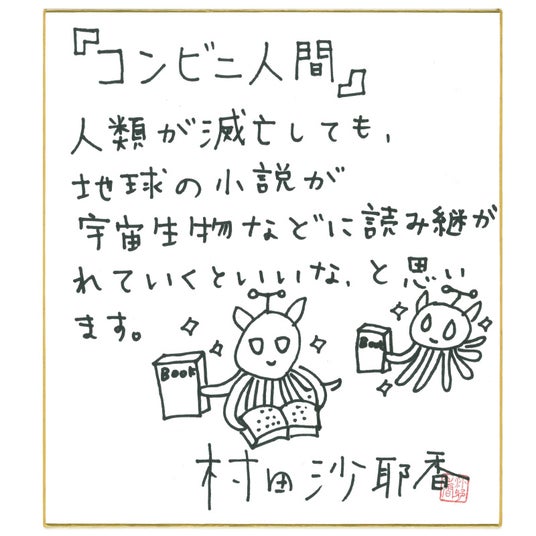 『コンビニ人間』
人類が滅亡しても、
地球の小説が
宇宙生物などに読み継が
れていくといいな、と思い
ます。
Book
Book
村田沙耶香